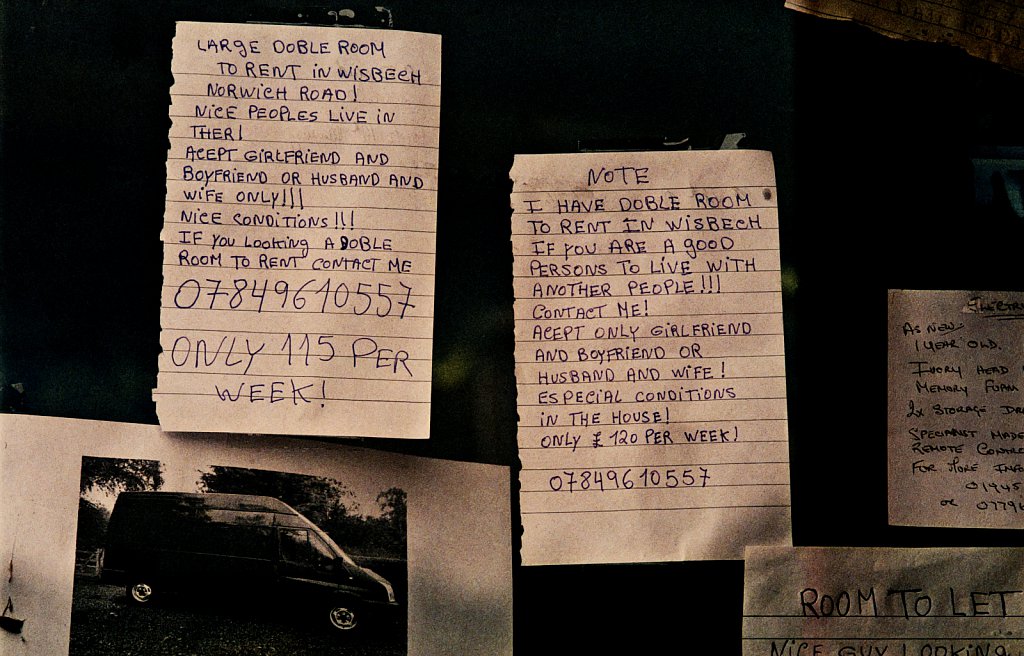 LARGE DOBLE ROOM
TO RENT IN WISBECH
NORWICH ROAD!
NICE PEOPLES LIVE IN
THER!
ACEPT GIRLFRIEND AND
BOYFRIEND OR HUSBAND AND
WIFE ONLY!!!
NICE CONDITIONS!!!
IF you Looking A DOBLE
ROOM TO RENT CONTACT ME
07849610557
ONLY 115 PER
WEEK!
NOTE
I HAVE DOBLE ROOM
TO RENT IN WISBECH
IF you ARE A GOOD
PERSONS TO LIVE WITH
ANOTHER PEOPLE!!!
CONTACT ME!
ACEPT ONLY GIRLFRIEND
AND BOYFRIEND OR
HUSBAND AND WIFE!
ESPECIAL CONDITIONS
IN THE HOUSE!
ONLY £120 PER WEEK!
07849610557
AS NEW
1 YEAR OLD.
IVORY HEAD
MEMORY FOAM
2x STORAGE
SPECIALIST MADE
REMOTE
FOR MORE
01945
or 0779
ROOM TO LET
NICE GUY LOOKING